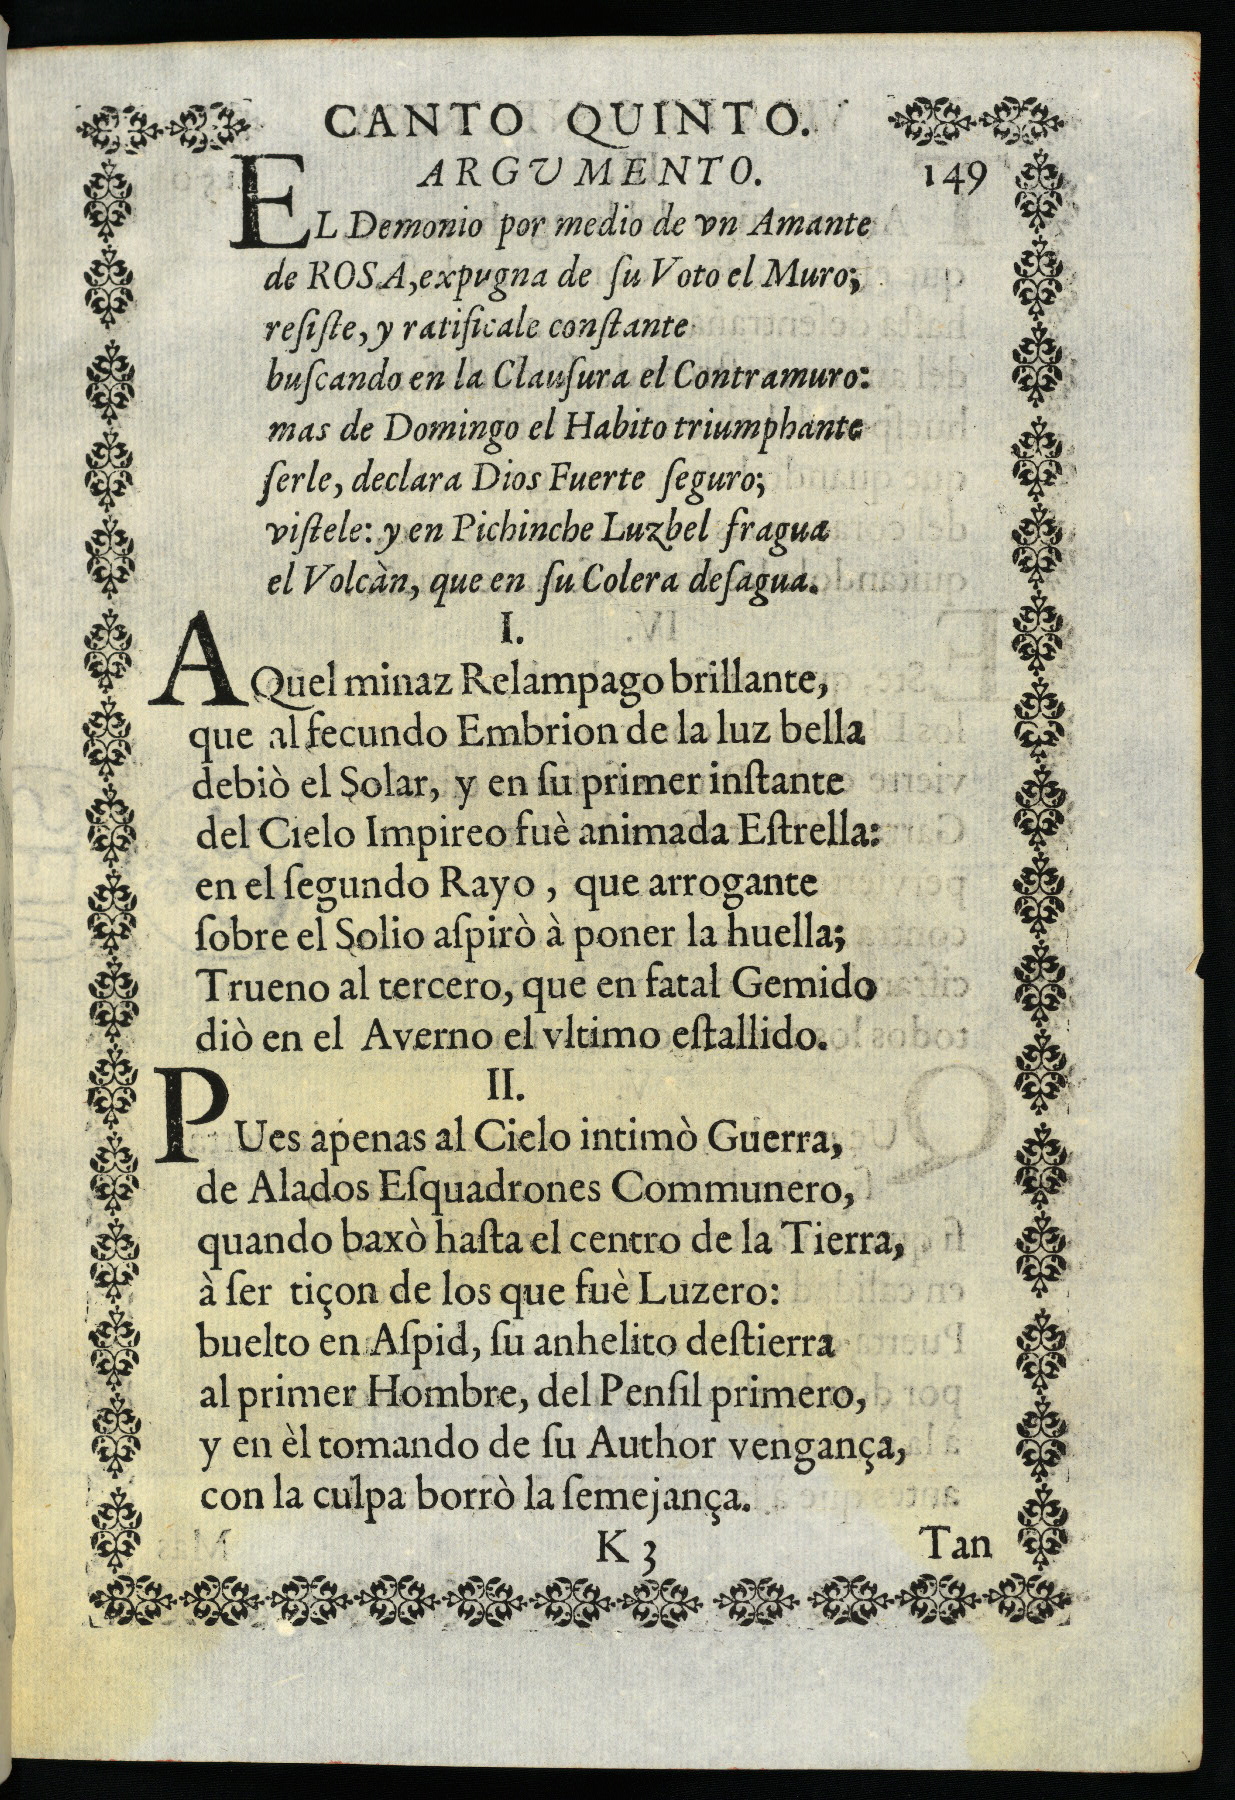 CANTO QUINTO.
ARGUMENTO. 149
EL Demonio por medio de vn Amante
de ROSA, expugna de ſu Voto el Muro;
reſiſte, y ratificale conſtante
buſcando en la Clauſura el Contramuro:
mas de Domingo el Habito triumphante
ſerle, declara Dios Fuerte ſeguro;
viſtele: y en Pichinche Luzbel fragua
el Volcàn, que en ſu Colera deſagua.
I.
AQuel minaz Relampago brillante,
que al fecundo Embrion de la luz bella
debiò el Solar, y en ſu primer inſtante
del Cielo Impireo fuè animada Eſtrella:
en el ſegundo Rayo, que arrogante
ſobre el Solio aſpirò à poner la huella;
Trueno al tercero, que en fatal Gemido
diò en el Averno el vltimo eſtallido.
II.
PUes apenas al Cielo intimò Guerra,
de Alados Eſquadrones Communero,
quando baxò haſta el centro de la Tierra,
à ſer tiçon de los que fuè Luzero:
buelto en Aſpid, ſu anhelito deſtierra
al primer Hombre, del Penſil primero,
y en èl tomando de ſu Author vengança,
con la culpa borrò la ſemejança.
K 3 Tan